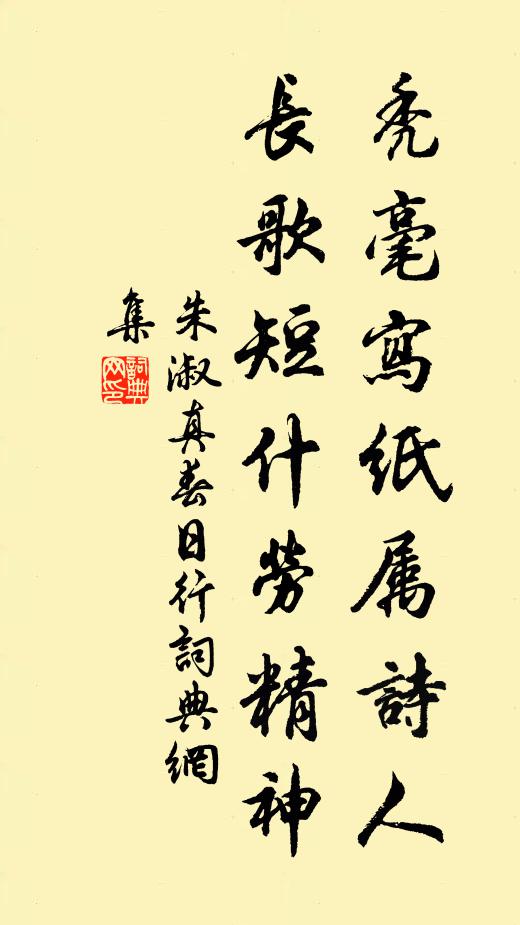 秃毫寫紙属詩人
長歌短什勞精神
朱淑真春日行詞典網
集
詞典网印